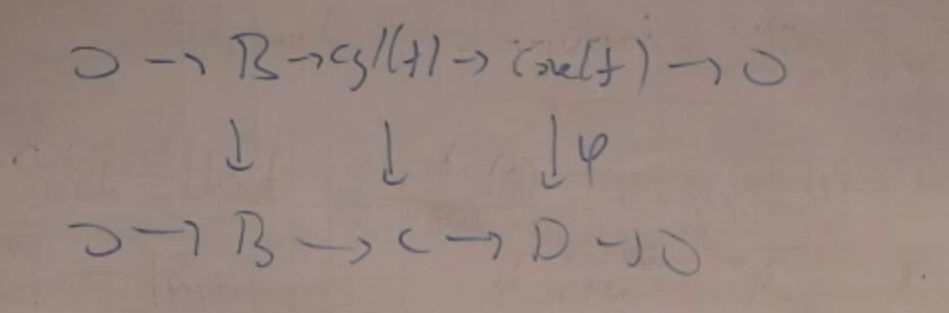 0 → B → cyl(f) → cone(f) → 0
↓ ↓ ↓ φ
0 → B → C → D → 0